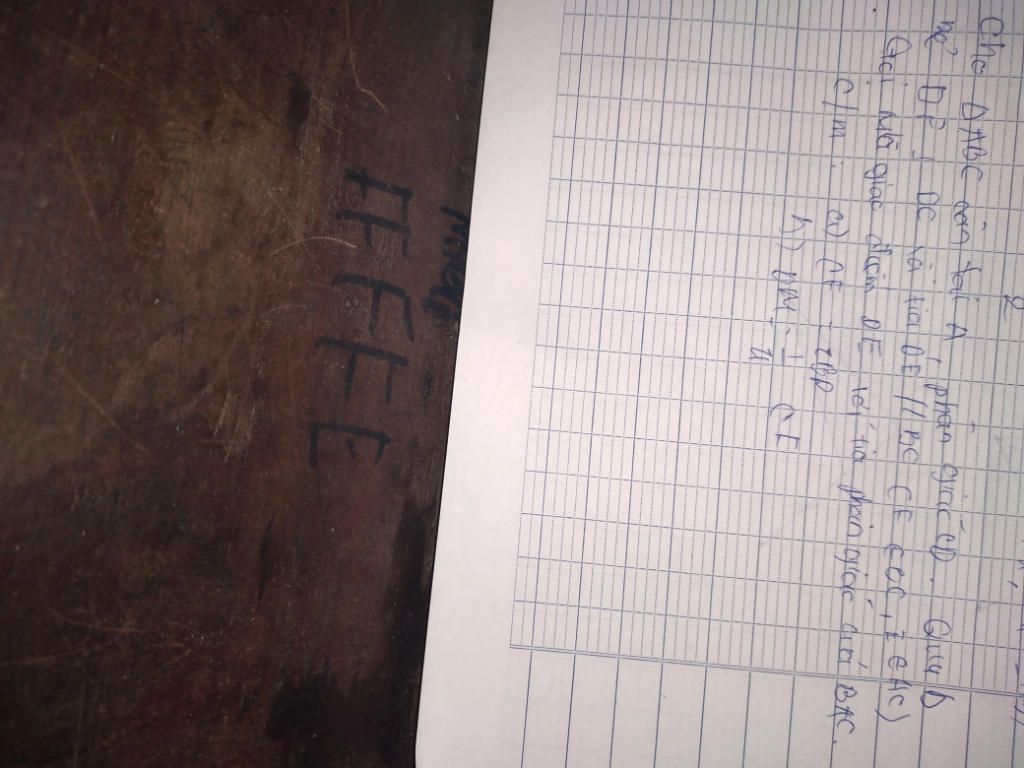 2
Cho ΔABC cân tại A phân giác CD. Qua D
kẻ DF ⊥ DC và tia DE//BC (F ∈ BC, E ∈ AC)
Gọi M là giao điểm DE với tia phân giác của BAC.
C/m: a) CF = 2BD
b) DM = 1/4 CF